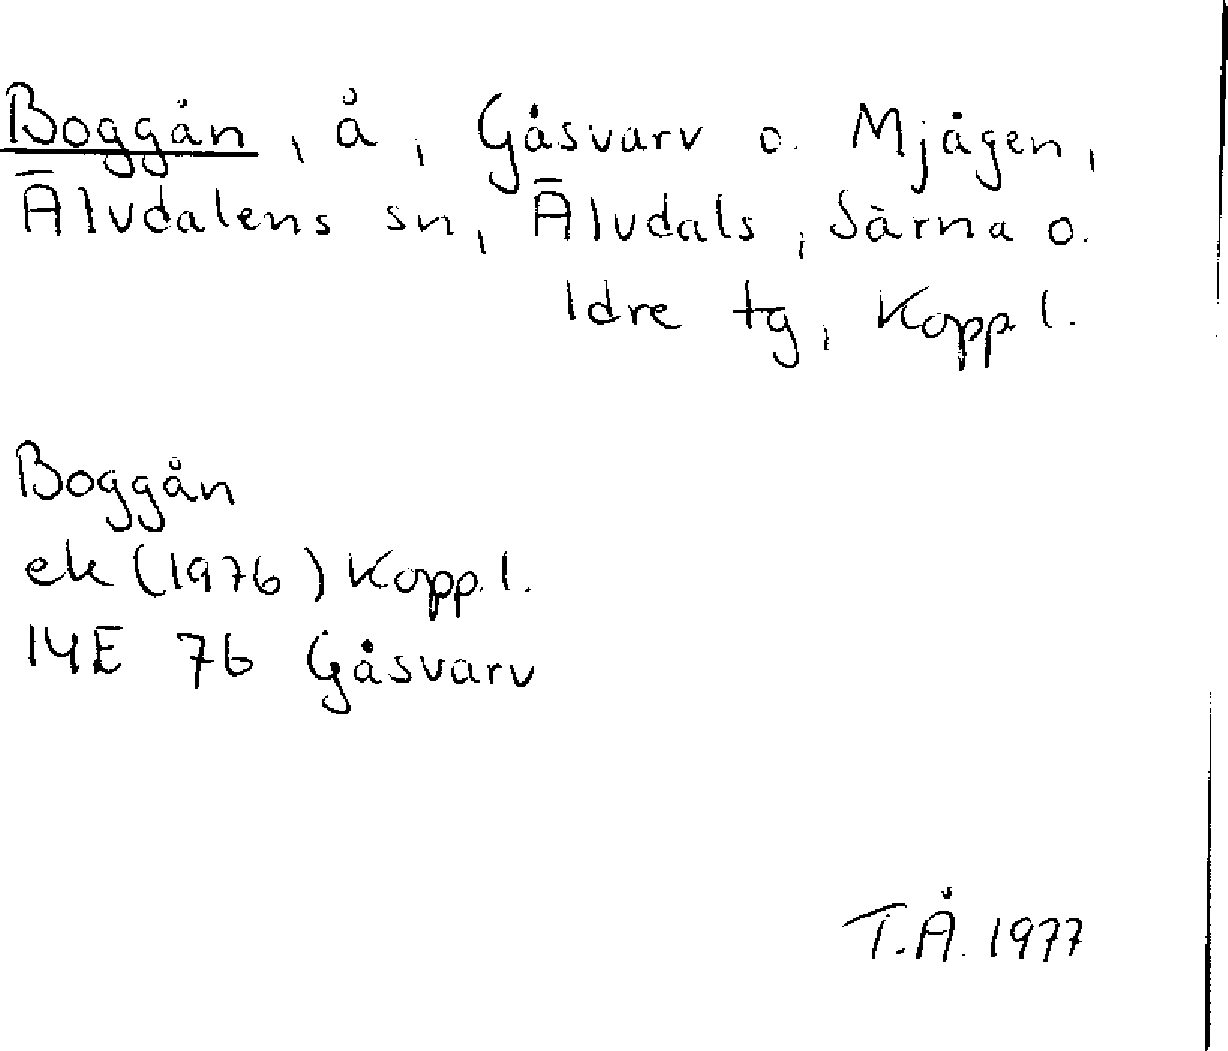 Boggån, å, Gåsvarv o. Mjågen,
Älvdalens sn, Älvdals, Särna o.
Idre tg, Kopp l.
Boggån
ek (1976) Kopp. l.
14E 7b Gåsvarv
T.Å. 1977